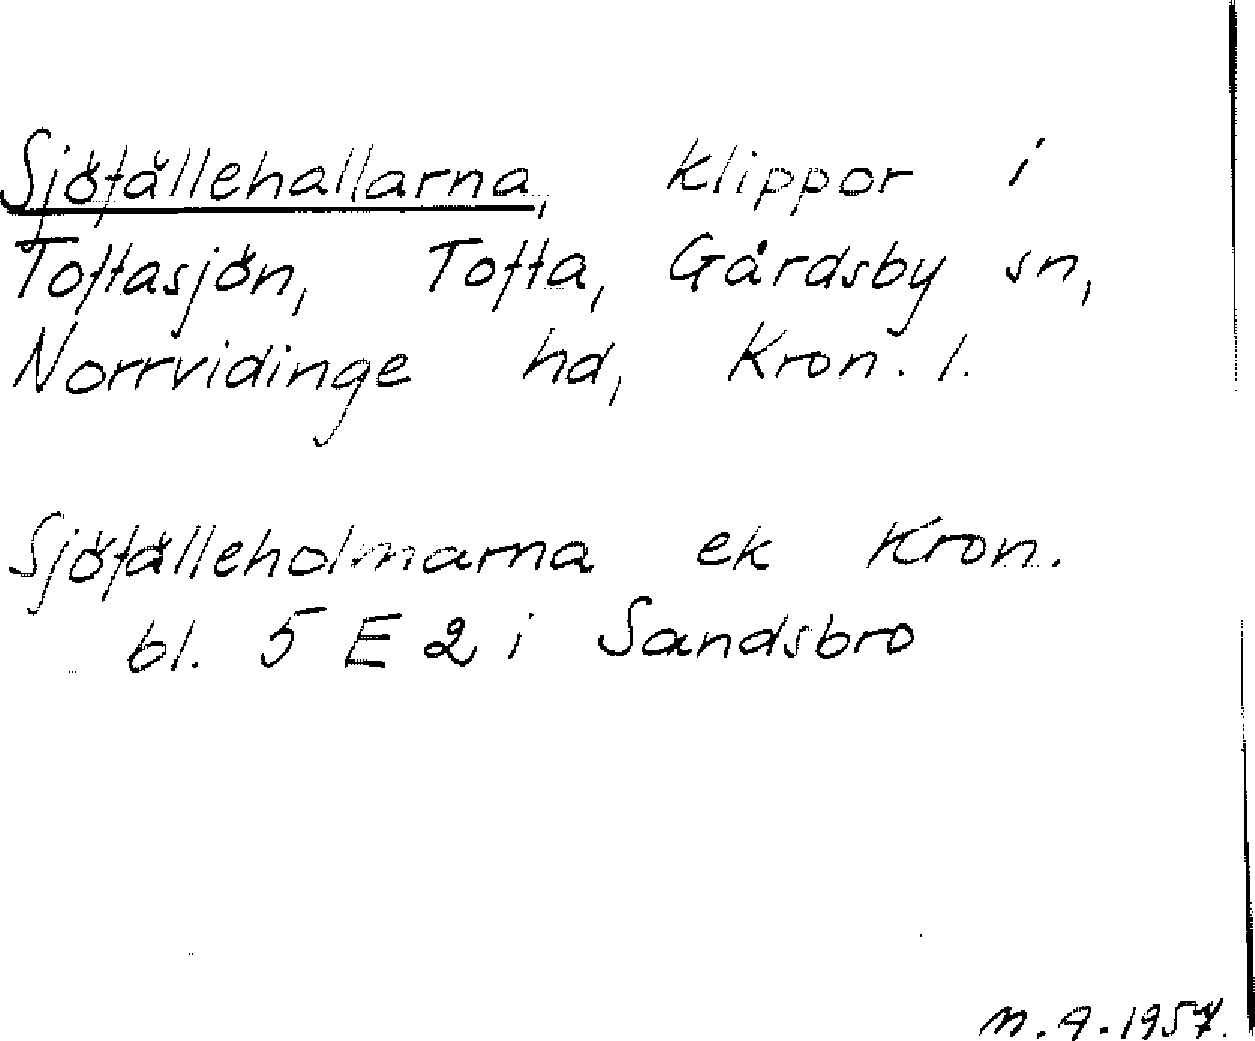 Sjöfällehallarna, klippor i
Toftasjön, Tofta, Gårdsby sn,
Norrvidinge hd, Kron. l.
Sjöfälleholmarna ek Kron.
bl. 5 E 2 i Sandsbro
n.A.1957.